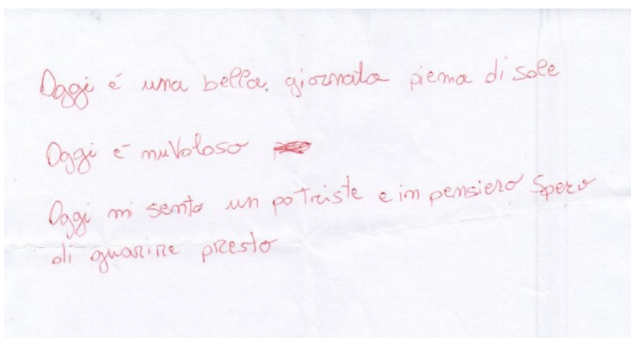 Oggi é una bella. giornata piena di sole
Oggi é nuVoloso
Oggi mi sento un po Triste e in pensiero Spero
di guarire presto